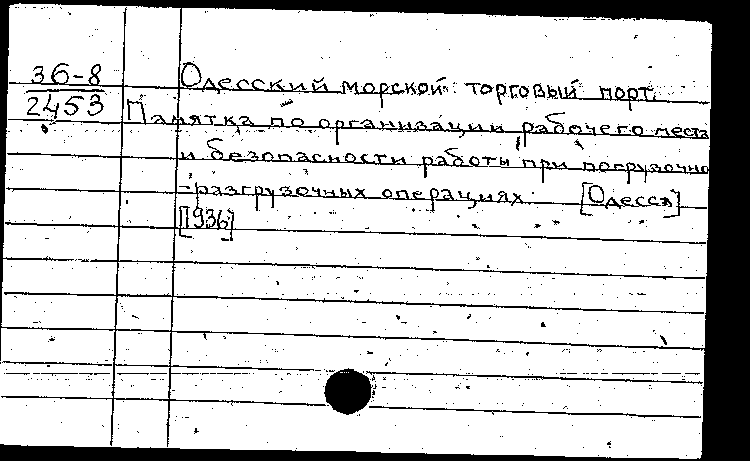 36-8
2453
Одесский морской торговый порт.
Памятка по организации рабочего места
и безопасности работы при погрузочно
-разгрузочных операциях. [Одесса]
[1936]